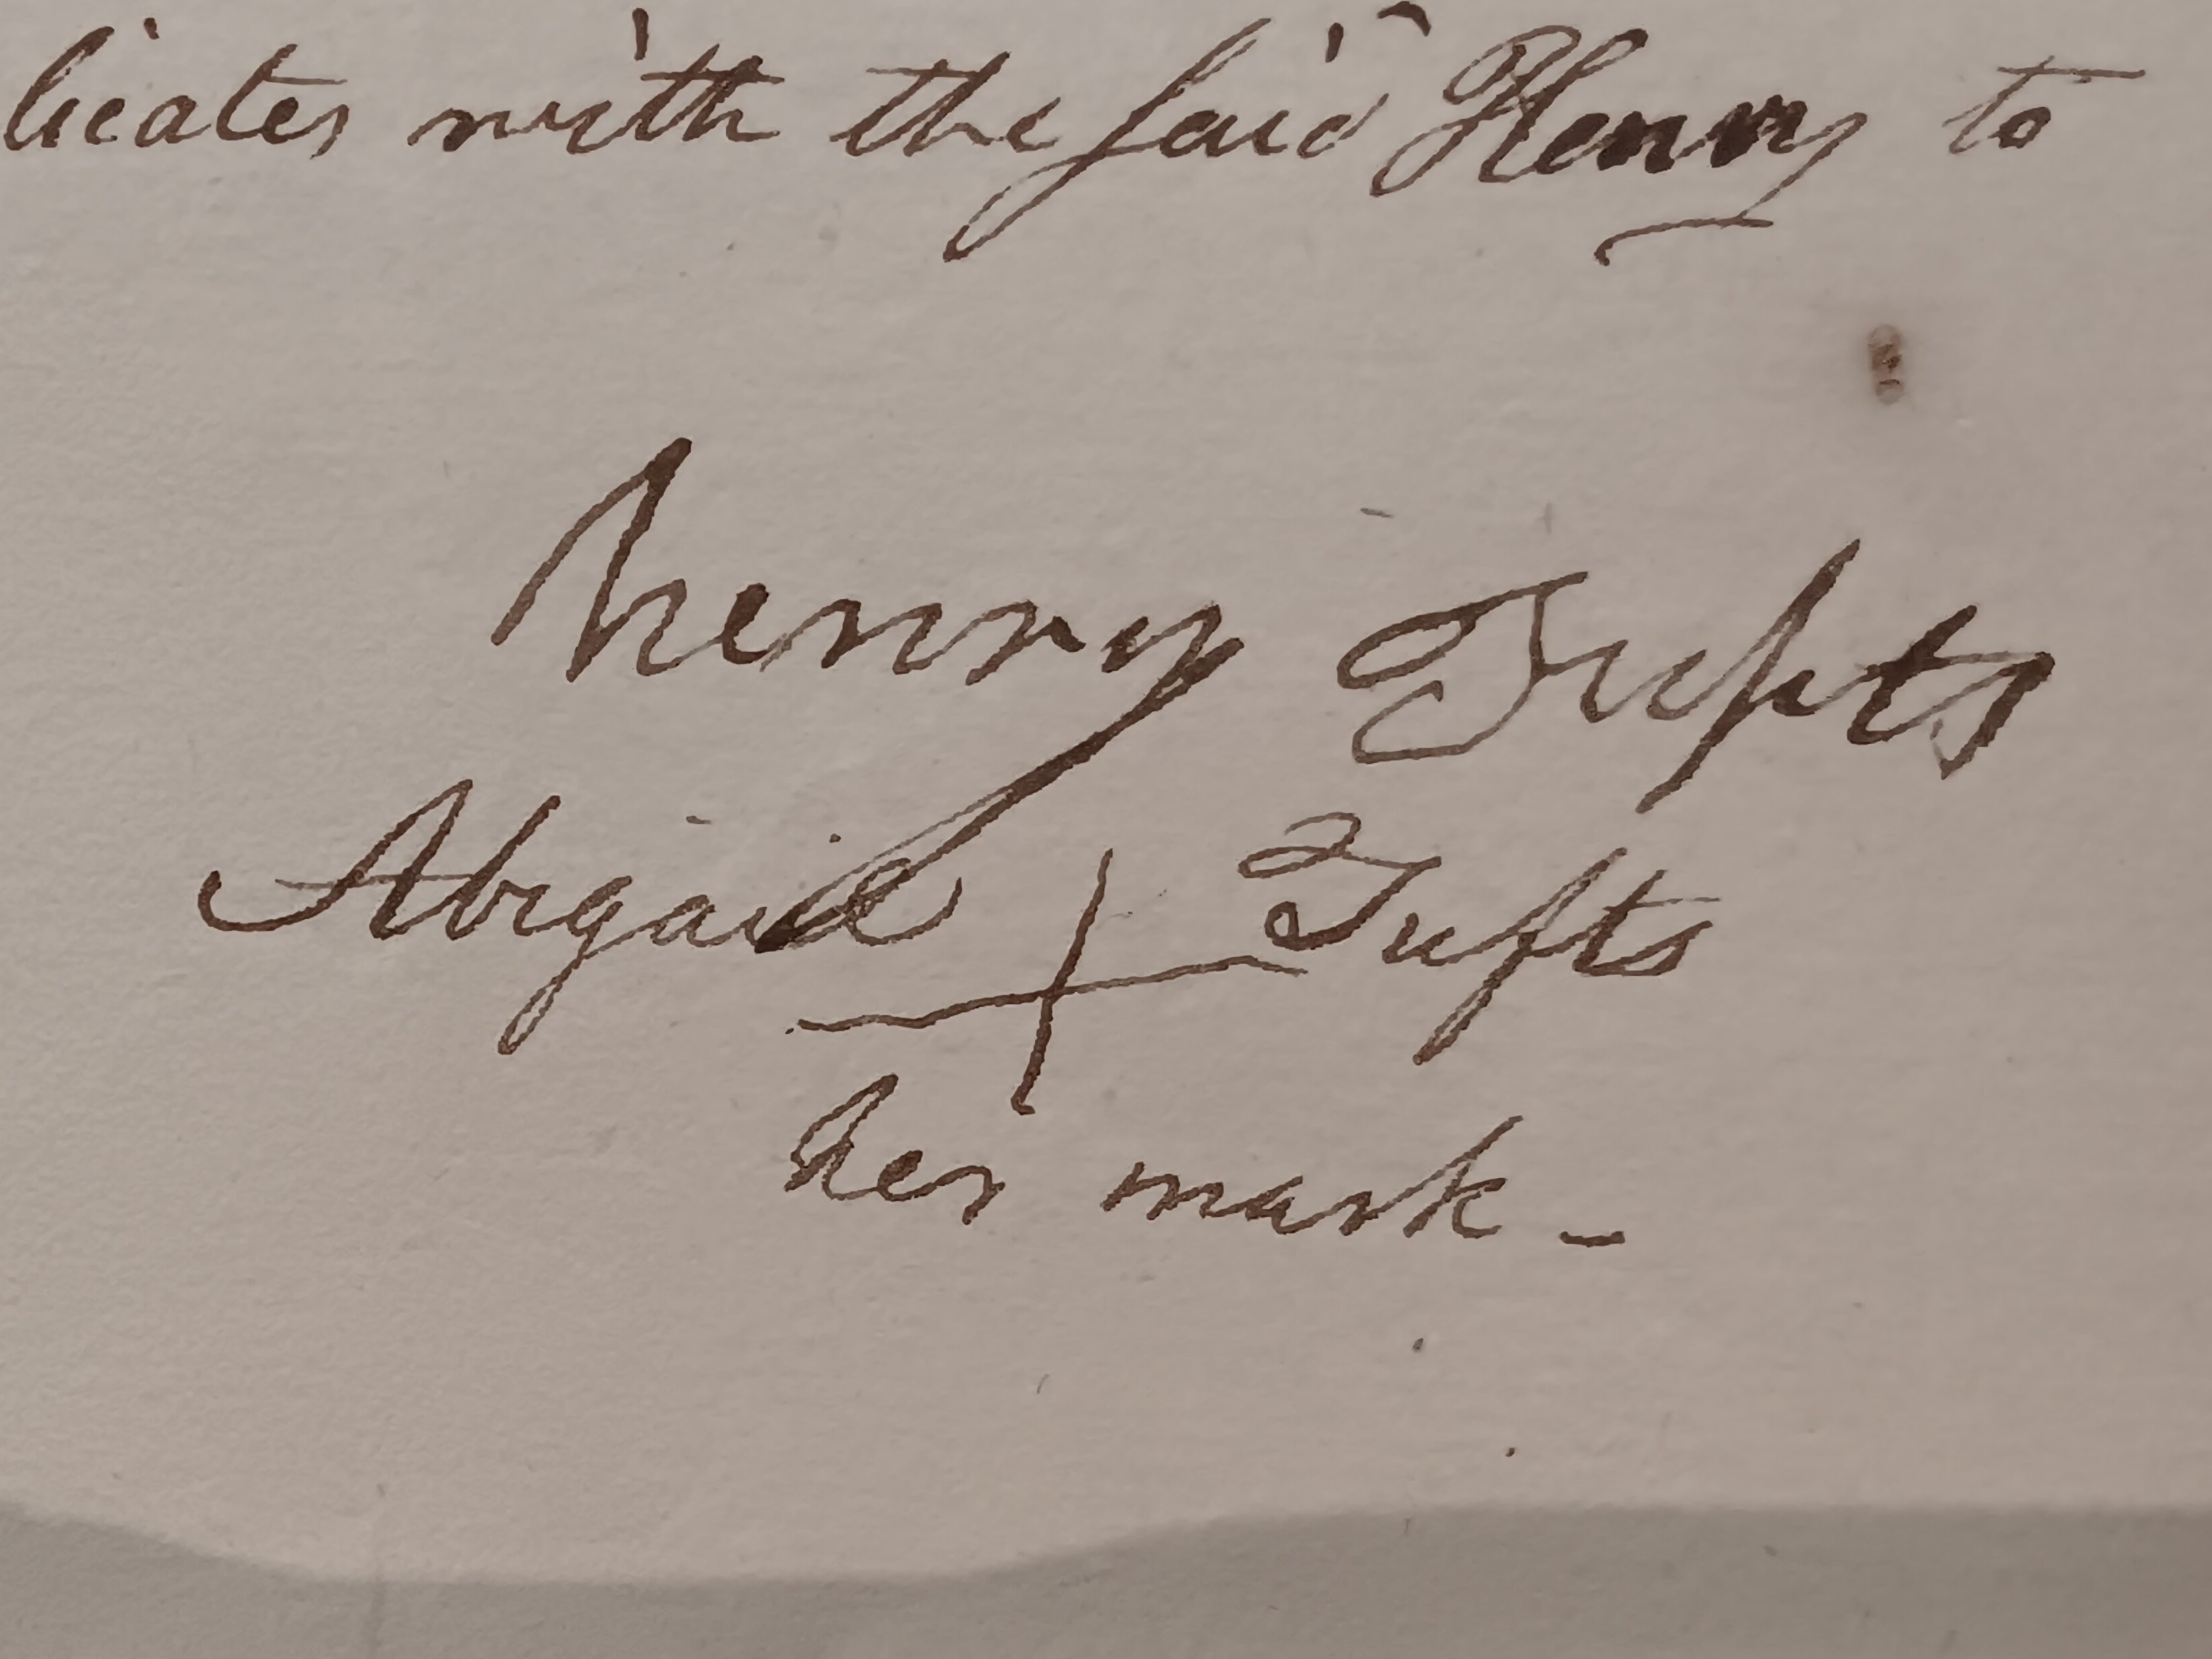 licates with the said Henry to
henry Tufts
Abigail + Tufts
her mark -